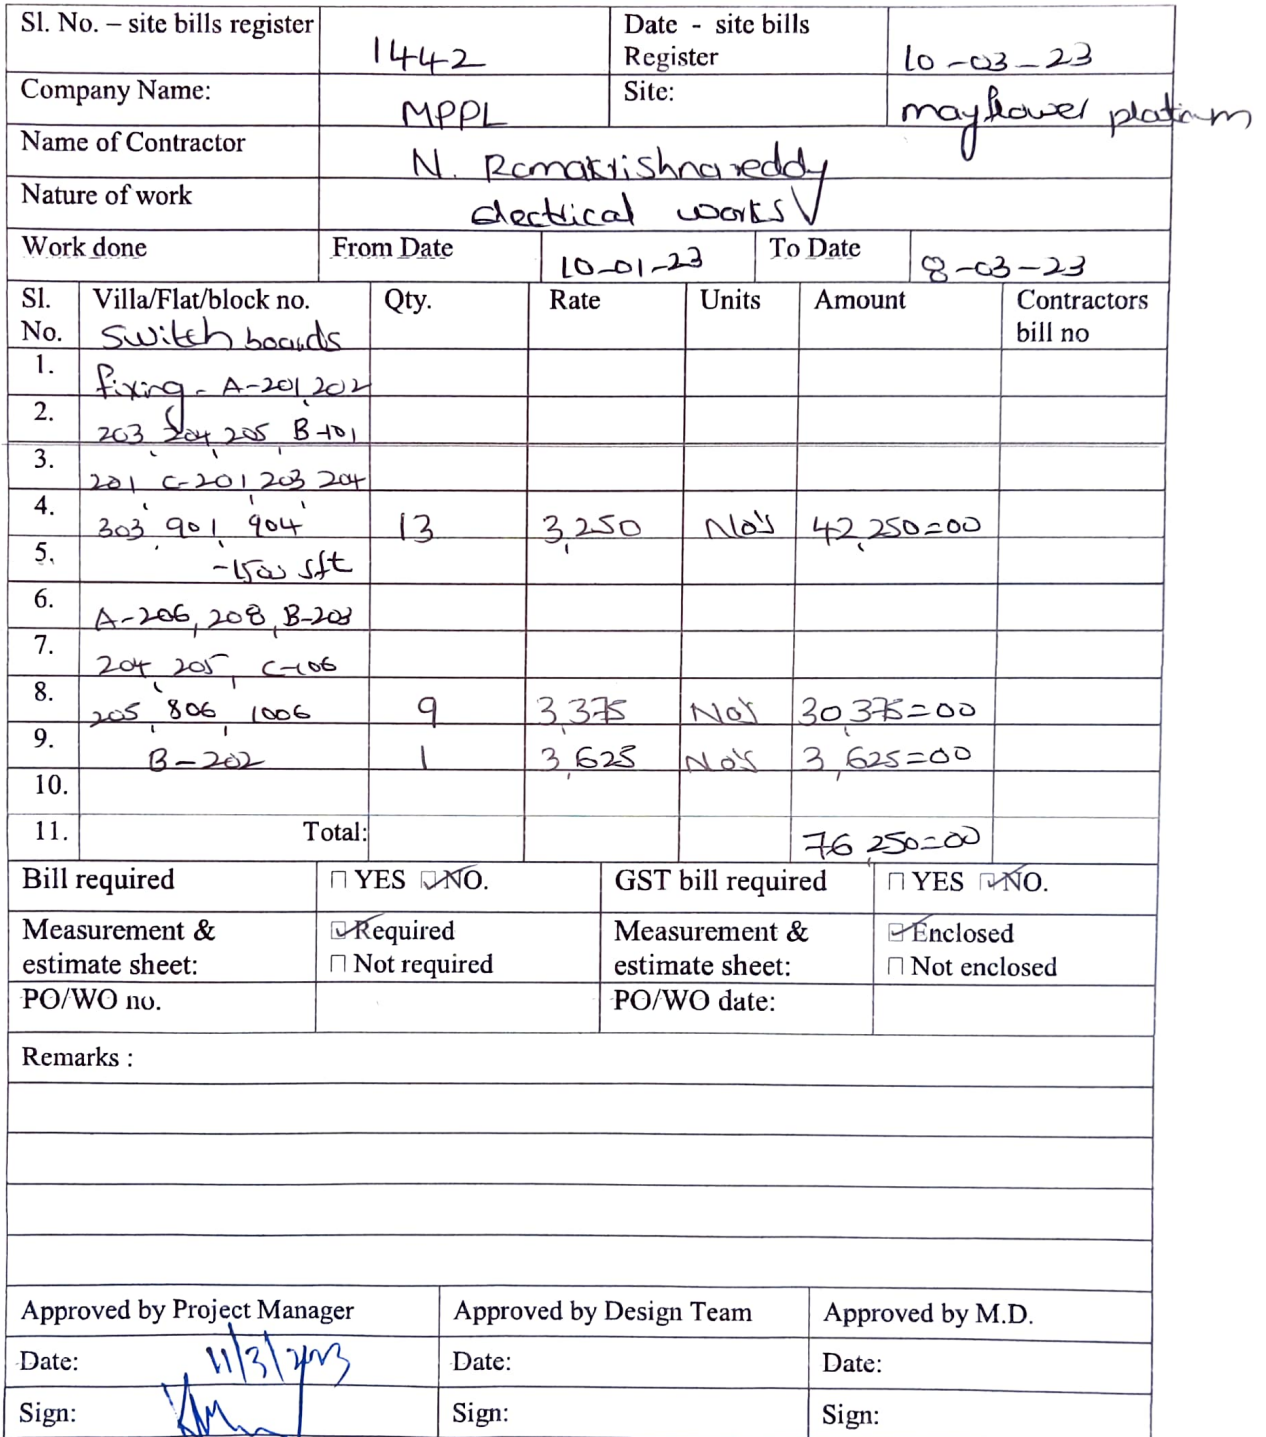 Sl. No. – site bills register 1442 Date - site bills Register 10-03-23
Company Name: MPPL Site: mayflower platinum
Name of Contractor N. Ramakrishna reddy
Nature of work electrical works
Work done From Date 10-01-23 To Date 8-03-23
Sl. No. Villa/Flat/block no. Qty. Rate Units Amount Contractors bill no
switch boards
1. fixing - A-201, 202
2. 203, 204, 205, B-101
3. 201, C-201, 203, 204
4. 303, 901, 904 13 3,250 No's 42,250=00
5. -1500 sft
6. A-206, 208, B-203
7. 204, 205, C-106
8. 205, 806, 1006 9 3,375 No's 30,375=00
9. B-202 1 3,625 No's 3,625=00
10.
11. Total: 76,250=00
Bill required □ YES ☑ NO. GST bill required □ YES ☑ NO.
Measurement & estimate sheet: ☑ Required □ Not required Measurement & estimate sheet: ☑ Enclosed □ Not enclosed
PO/WO no. PO/WO date:
Remarks :
Approved by Project Manager Approved by Design Team Approved by M.D.
Date: 11/3/2023 Date: Date:
Sign: Sign: Sign: